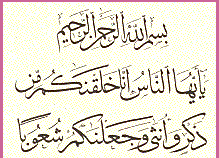 بسم الله الرحمن الرحيم
يأيها الناس إنا خلقنكم من
ذكر وأنثى وجعلنكم شعوبا